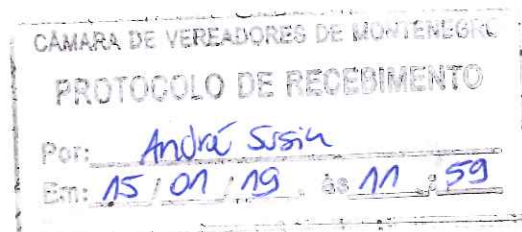 CÂMARA DE VEREADORES DE MONTENEGRO
PROTOCOLO DE RECEBIMENTO
Por: André Susin
Em: 15 / 01 / 19 . às 11 : 59